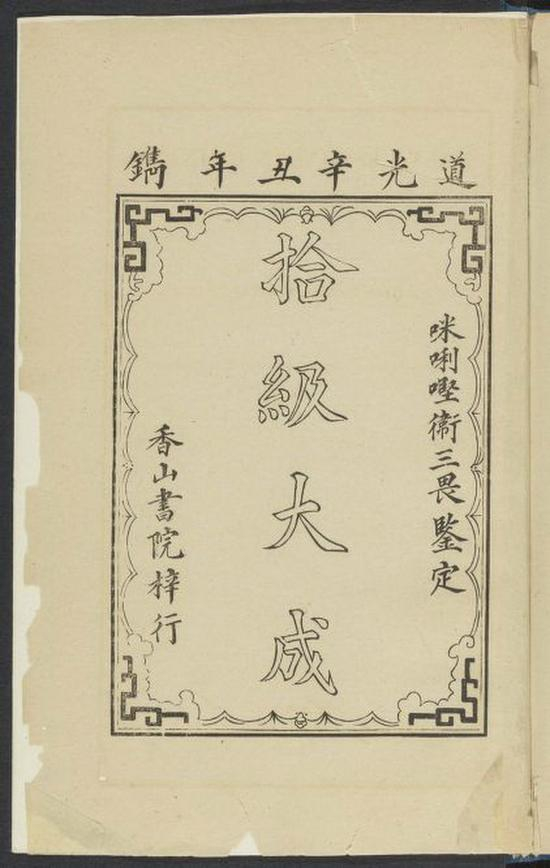 道光辛丑年鐫
咪唎㘉衞三畏鑒定
拾級大成
香山書院梓行